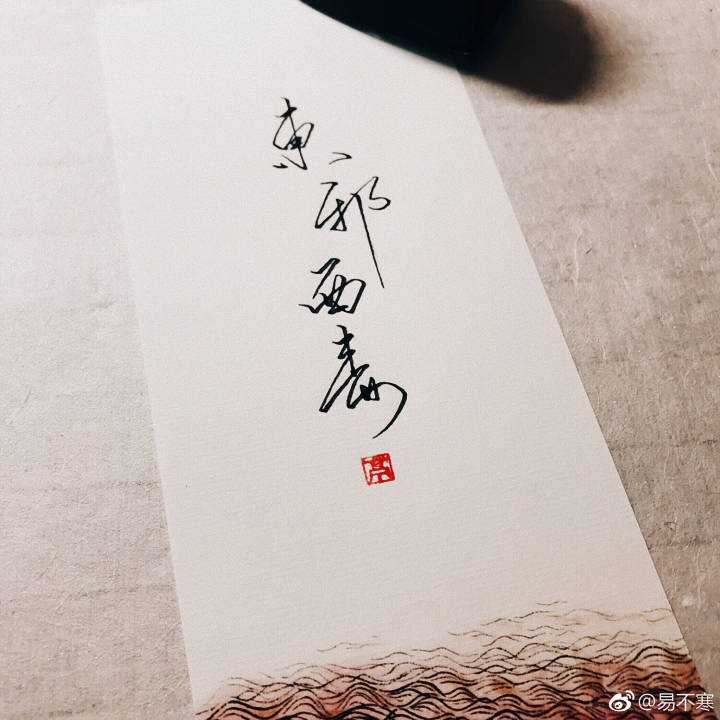 東邪西毒
@易不寒